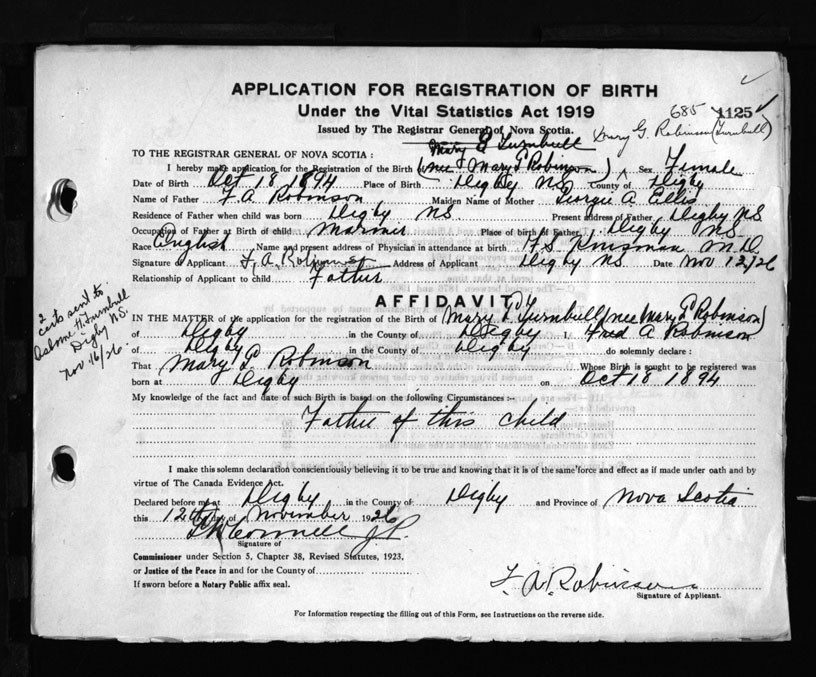 APPLICATION FOR REGISTRATION OF BIRTH
Under the Vital Statistics Act 1919
685 1125
Issued by The Registrar General of Nova Scotia.
Mary G. Robinson (Turnbull)
Mary Turnbull
TO THE REGISTRAR GENERAL OF NOVA SCOTIA :
I hereby make application for the Registration of the Birth (nee Mary Robinson) Sex Female
Date of Birth Oct 18 1894 Place of Birth Digby NS County of Digby
Name of Father F. A. Robinson Maiden Name of Mother Georgie A. Ellis
Residence of Father when child was born Digby NS. Present address of Father Digby NS
Occupation of Father at Birth of child Mariner Place of birth of Father Digby NS.
Race English Name and present address of Physician in attendance at birth F S Kinsman M.D.
Signature of Applicant F. A. Robinson Address of Applicant Digby NS Date Nov 12/26
Relationship of Applicant to child Father
2 certs sent to
Turnbull
Digby N.S.
Nov 16/26.
AFFIDAVIT
IN THE MATTER of the application for the registration of the Birth of Mary Turnbull (nee Mary Robinson)
of Digby in the County of Digby I, Fred A Robinson
of Digby in the County of Digby do solemnly declare :
That Mary Robinson Whose Birth is sought to be registered was
born at Digby on Oct 18 1894
My knowledge of the fact and date of such Birth is based on the following Circumstances :-
Father of this child
I make this solemn declaration conscientiously believing it to be true and knowing that it is of the same force and effect as if made under oath and by
virtue of The Canada Evidence Act.
Declared before me at Digby in the County of Digby and Province of Nova Scotia
this 12th day of November 1926
Connell J.P.
Signature of
Commissioner under Section 5, Chapter 38, Revised Statutes, 1923,
or Justice of the Peace in and for the County of
If sworn before a Notary Public affix seal.
F. A. Robinson
Signature of Applicant.
For Information respecting the filling out of this Form, see Instructions on the reverse side.